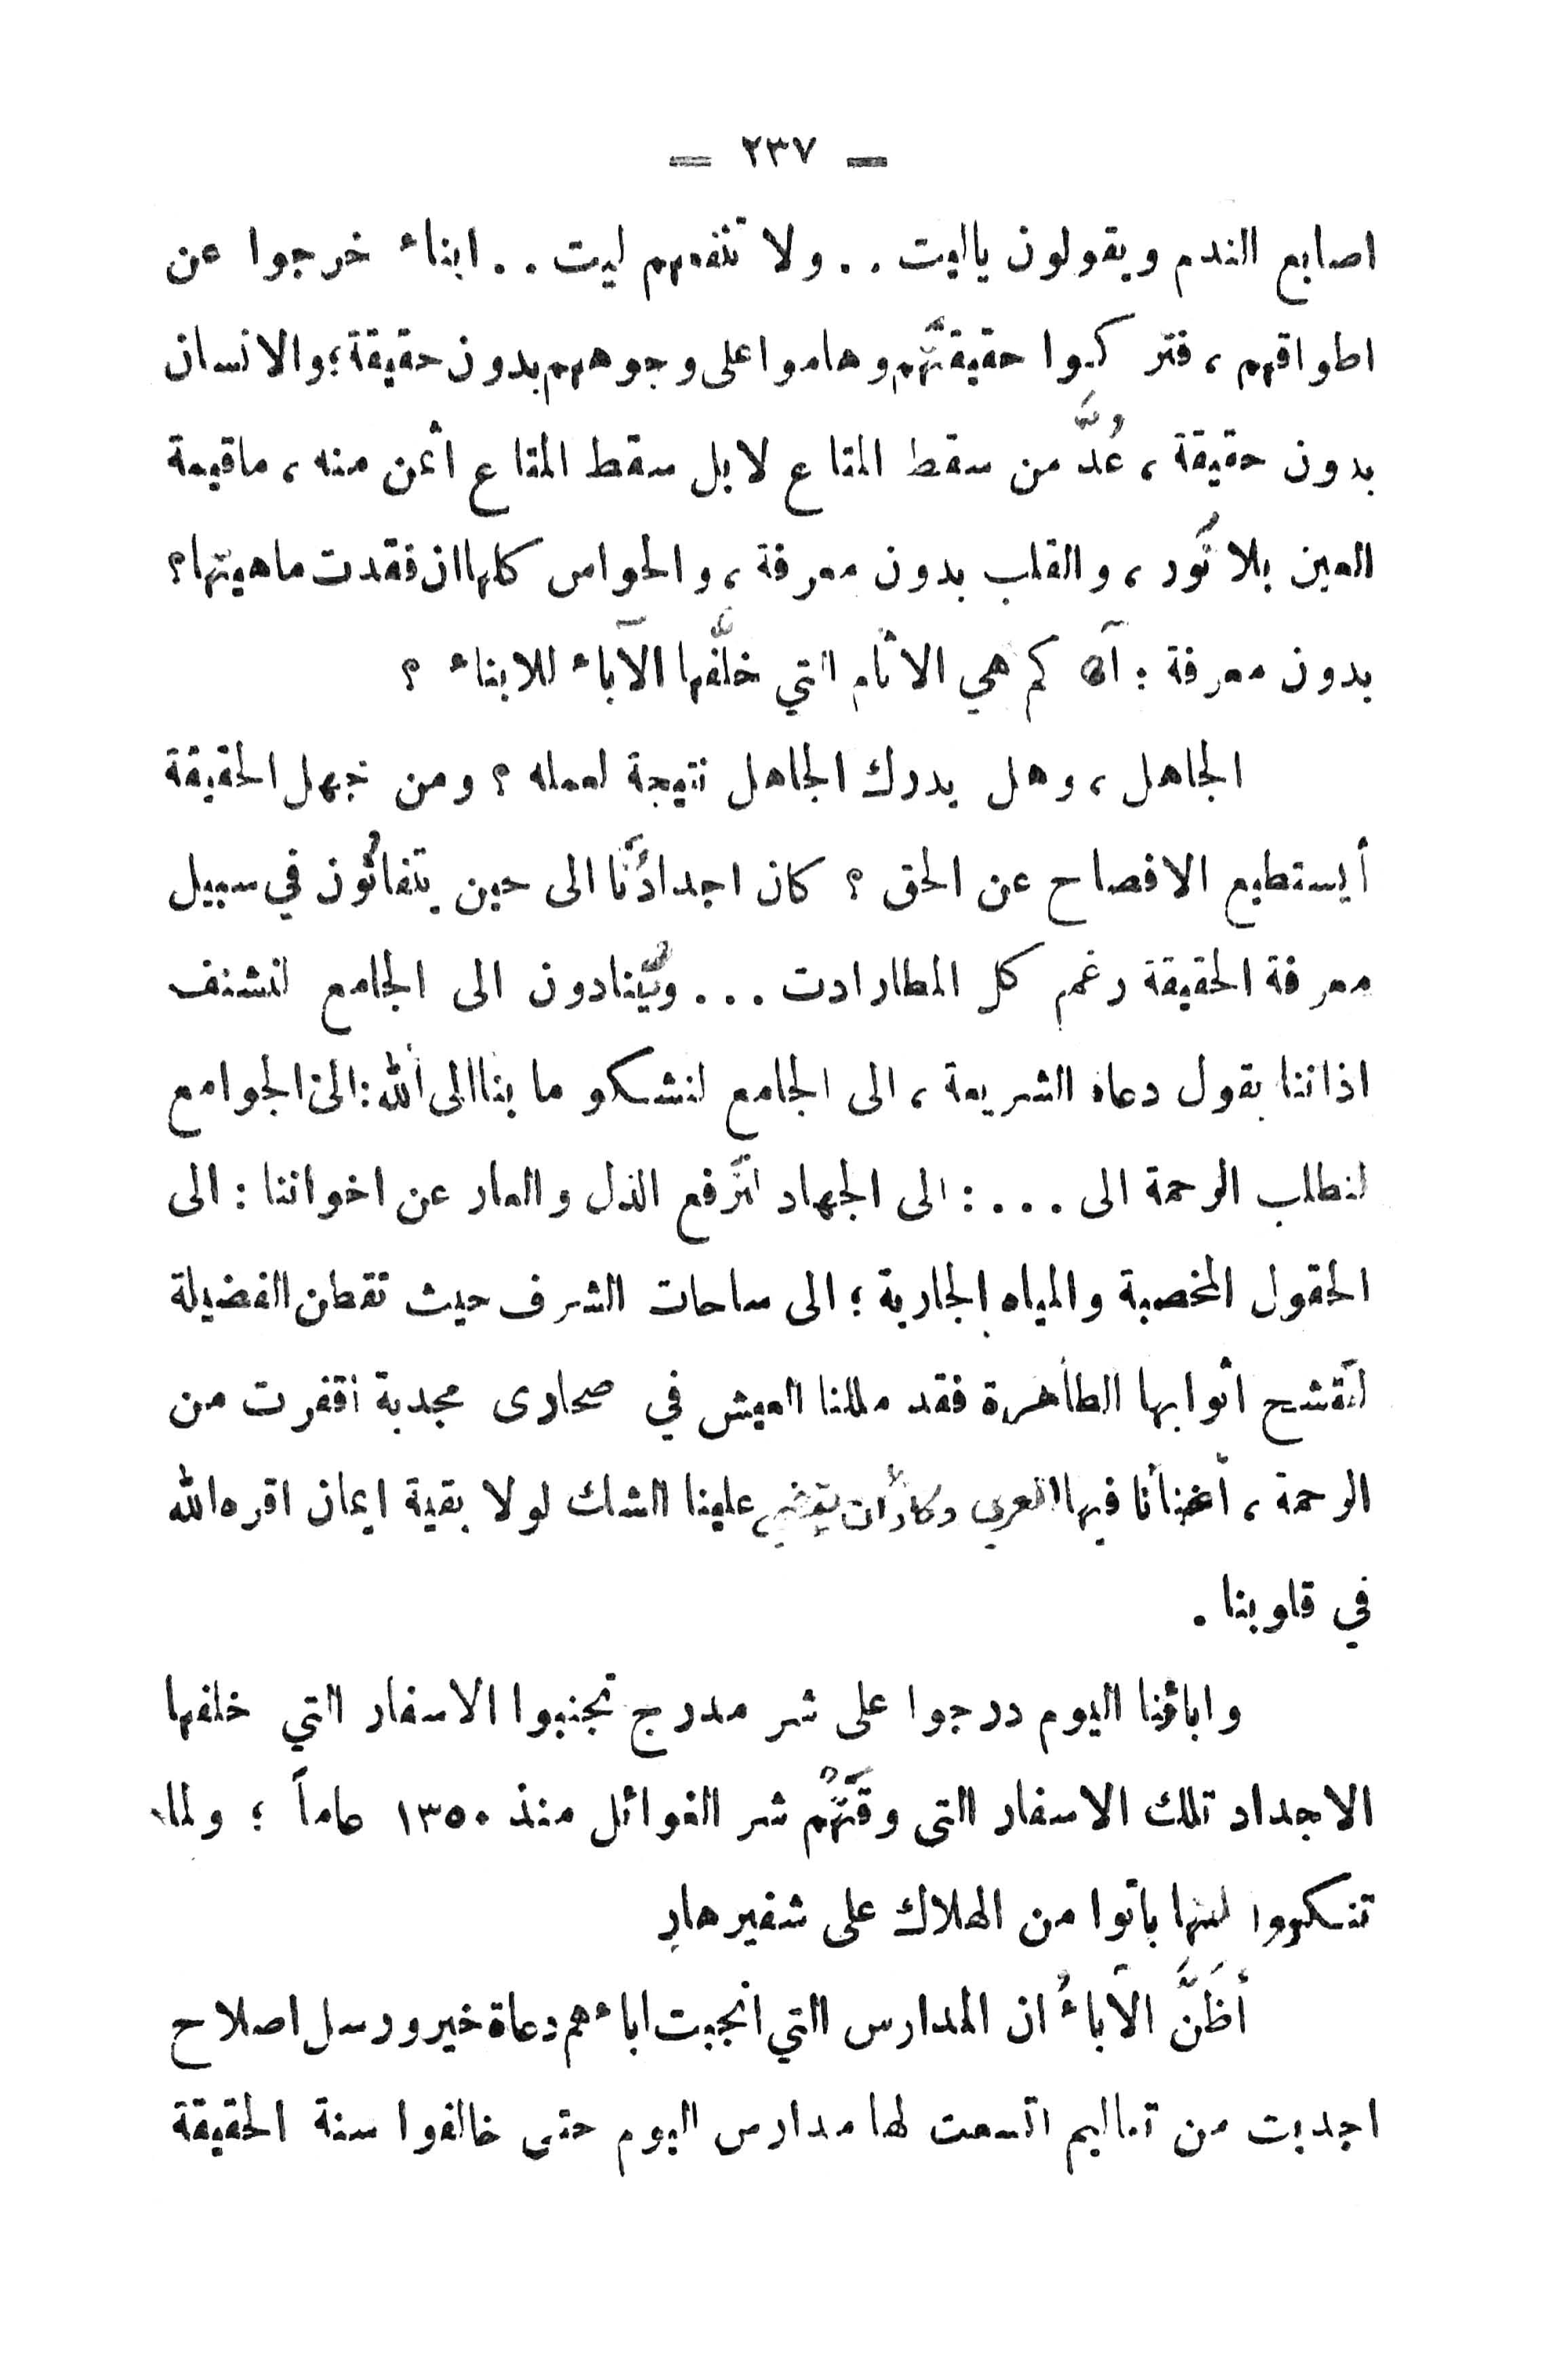 — ٢٣٧ —
اصابع الندم ويقولون ياليت . . ولا تنفعهم ليت . . ابناء خرجوا عن
اطواقهم ، فتركوا حقيقتَهم وهاموا على وجوههم بدون حقيقة ؛ والانسان
بدون حقيقة ، عُدَّ من سقط المتاع لا بل سقط المتاع أثمن منه ، ما قيمة
العين بلا نُور ، والقلب بدون معرفة ، والحواس كلها ان فقدت ماهيتها ؟
بدون معرفة : آه كم هي الاثام التي خلَّفها الآباء للابناء ؟
الجاهل ، وهل يدرك الجاهل نتيجة لعمله ؟ ومن جهل الحقيقة
أيستطيع الافصاح عن الحق ؟ كان اجدادُنَا الى حين يتفانُون في سبيل
معرفة الحقيقة رغم كل المطاردات . . . ويُنادون الى الجامع لنشنف
اذاننا بقول دعاه الشريعة ، الى الجامع لنشكو ما بنا الى الله : الى الجوامع
لنطلب الرحمة الى . . . : الى الجهاد لنَرفع الذل والعار عن اخواننا : الى
الحقول المخصبة والمياه الجارية ؛ الى ساحات الشرف حيث تقطن الفضيلة
لنتشح أثوابها الطاهرة فقد مللنا العيش في صحارى مجدبة اقفرت من
الرحمة ، فيها العري وكاد أن يقضي علينا الشك لولا بقية ايمان اقره الله
في قلوبنا .
واباؤنا اليوم درجوا على شر مدرج تجنبوا الاسفار التي خلفها
الاجداد تلك الاسفار التى وقَتْهُم شر الغوائل منذ ١٣٥٠ عاماً ؛ ولما
تنكروا لها باتوا من الهلاك على شفير هارِ
أظَنَّ الآباءُ ان المدارس التي انجبت اباءهم دعاة خير ورسل اصلاح
اجدبت من تعاليم اتسعت لها مدارس اليوم حتى خالفوا سنة الحقيقة